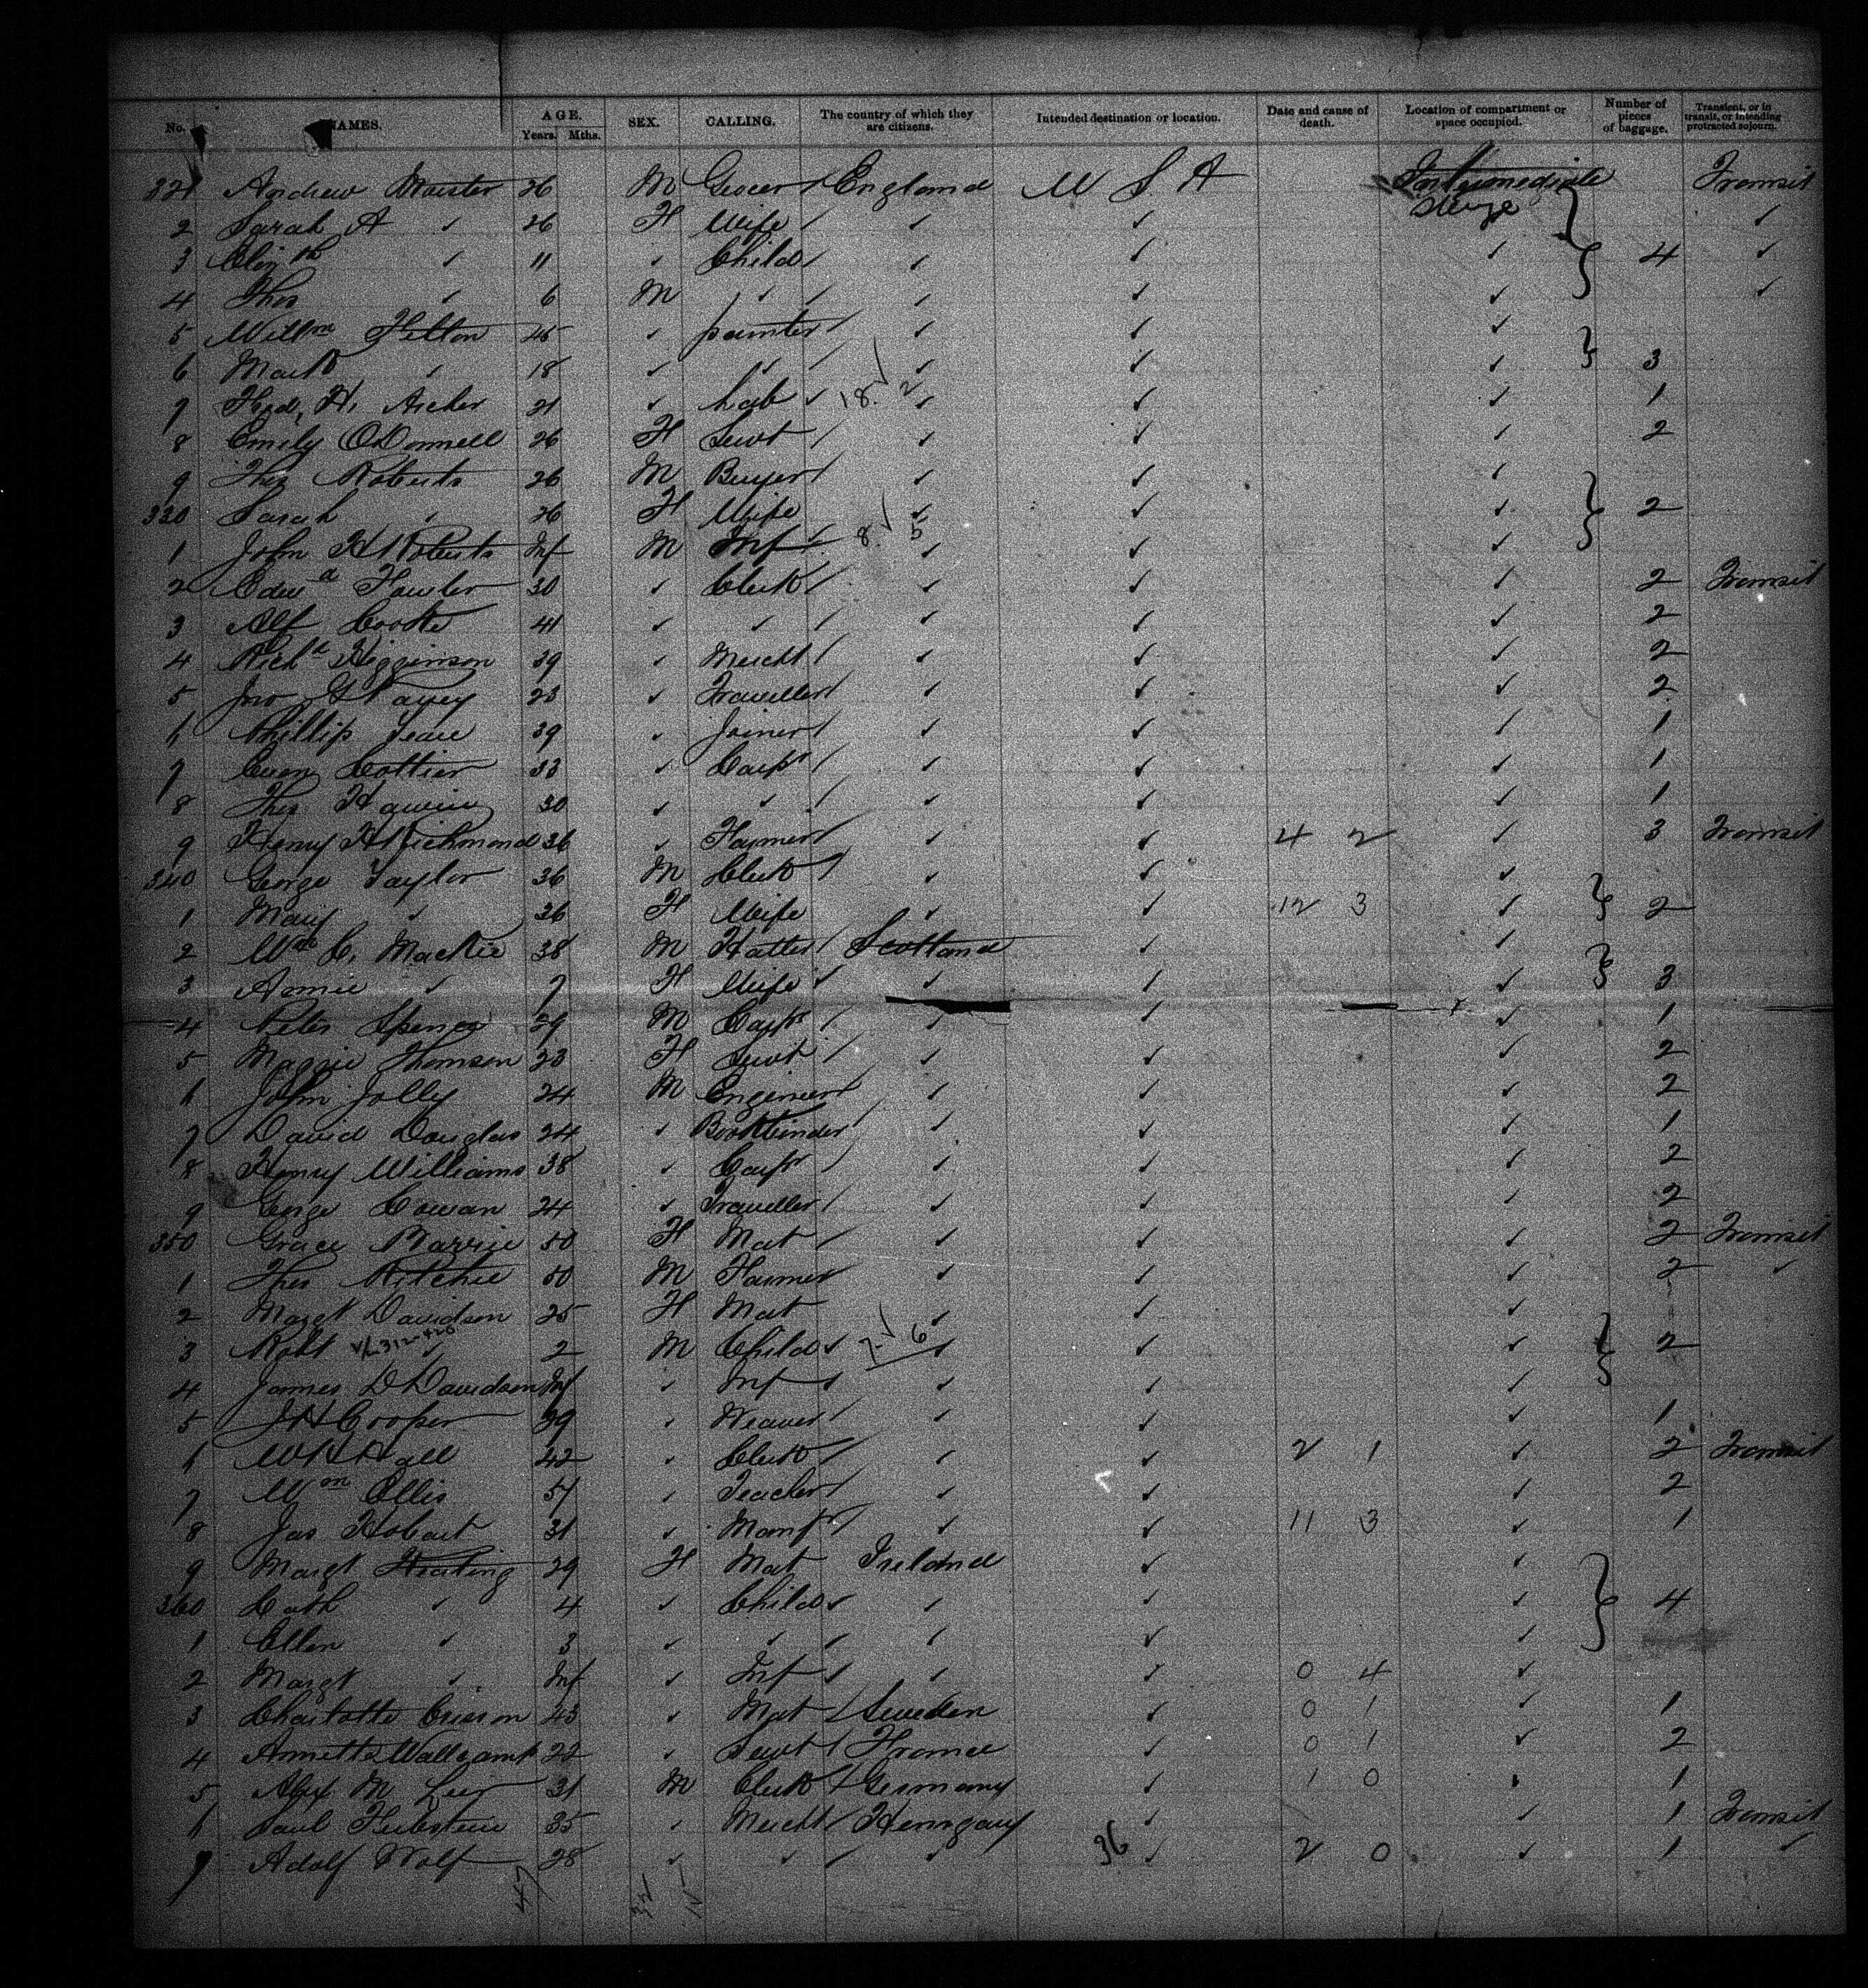 No. NAMES. AGE. Years. Mths. SEX. CALLING. The country of which they are citizens. Intended destination or location. Date and cause of death. Location of compartment or space occupied. Number of pieces of baggage. Transient, or in transit, or intending protracted sojourn.
321 Andrew 26 M Grocer England U S A Intermediate Transit
Sterge
2 Sarah A ✓ 26 F Wife ✓ ✓ ✓
3 Eliz th ✓ 11 ✓ Child ✓ ✓ ✓ 4 ✓
4 Thos ✓ 6 M ✓ ✓ ✓ ✓ ✓
5 Willm Helton 45 ✓ painter ✓ ✓ ✓
6 Mark ✓ 18 ✓ ✓ ✓ ✓ ✓ 3
7 Fred H. Archer 21 ✓ Lab ✓ 18. 2 ✓ ✓ ✓ 1
8 Emily ODonnell 26 F Servt ✓ ✓ ✓ 2
9 Thos Roberts 26 M Buyer ✓ ✓ ✓
330 Sarah ✓ 26 F Wife ✓ ✓ ✓ 2
1 John H Roberts Inf M Inf 8. 5 ✓ ✓ ✓
2 Edwd Fowler 30 ✓ Clerk ✓ ✓ ✓ 2 Transit
3 Alf Cooke 41 ✓ ✓ ✓ ✓ ✓ 2
4 Richd Higginson 39 ✓ Mercht ✓ ✓ ✓ 2
5 Jno G 23 ✓ Traveller ✓ ✓ ✓ 2
6 Phillip Teare 39 ✓ Joiner ✓ ✓ ✓ 1
7 Cottier 33 ✓ Carpr ✓ ✓ ✓ 1
8 Thos 30 ✓ ✓ ✓ ✓ ✓ 1
9 Henry H Richmond 36 ✓ Farmer ✓ ✓ 4 2 ✓ 3 Transit
340 George Taylor 36 M Clerk ✓ ✓ ✓
1 Mary ✓ 36 F Wife ✓ ✓ 12 3 ✓ 2
2 Wm C. Mackie 38 M Hatter Scotland ✓ ✓
3 Annie ✓ 7 F Wife ✓ ✓ ✓ ✓ 3
4 Peter Spence 29 M Carpr ✓ ✓ ✓ 1
5 Maggie Thomson 23 F Servt ✓ ✓ ✓ 2
6 John Jolly 24 M Engineer ✓ ✓ ✓ 2
7 David Douglas 24 ✓ Bookbinder ✓ ✓ ✓ 1
8 Henry Williams 38 ✓ Carpr ✓ ✓ ✓ 2
9 George Cowan 24 ✓ Traveller ✓ ✓ ✓ 2
350 Grace Barrie 50 F Mat ✓ ✓ ✓ 2 Transit
1 Thos Ritchie 50 M Farmer ✓ ✓ ✓ 2 ✓
2 Margt Davidson 25 F Mat ✓ ✓ ✓
3 Robt ✓ 2 M Child ✓ 7. 6 ✓ ✓ ✓ 2
4 James D Davidson Inf ✓ Inf ✓ ✓ ✓
5 J H Cooper 39 ✓ Weaver ✓ ✓ ✓ 1
6 W H Hall 42 ✓ Clerk ✓ ✓ 2 1 ✓ 2 Transit
7 Wm Ellis 51 ✓ Teacher ✓ ✓ ✓ 2
8 Jas Hobart 31 ✓ Manfr ✓ ✓ 11 3 ✓ 1
9 Margt Keating 29 F Mat Ireland ✓ ✓
360 Cath ✓ 4 ✓ Child ✓ ✓ ✓ ✓ 4
1 Ellen ✓ 3 ✓ ✓ ✓ ✓ ✓ ✓
2 Margt ✓ Inf ✓ Inf ✓ ✓ ✓ 0 4 ✓
3 Charlotte Ericson 43 ✓ Mat Sweden ✓ 0 1 ✓ 1
4 Annette 22 ✓ Servt France ✓ 0 1 ✓ 2
5 Alex M 31 M Clerk Germany ✓ 1 0 ✓ 1
6 Paul 35 ✓ Mercht Hungary ✓ ✓ 1 Transit
7 Adolf Wolf 28 ✓ ✓ ✓ ✓ 36 ✓ 2 0 ✓ 1 ✓
47 32 15